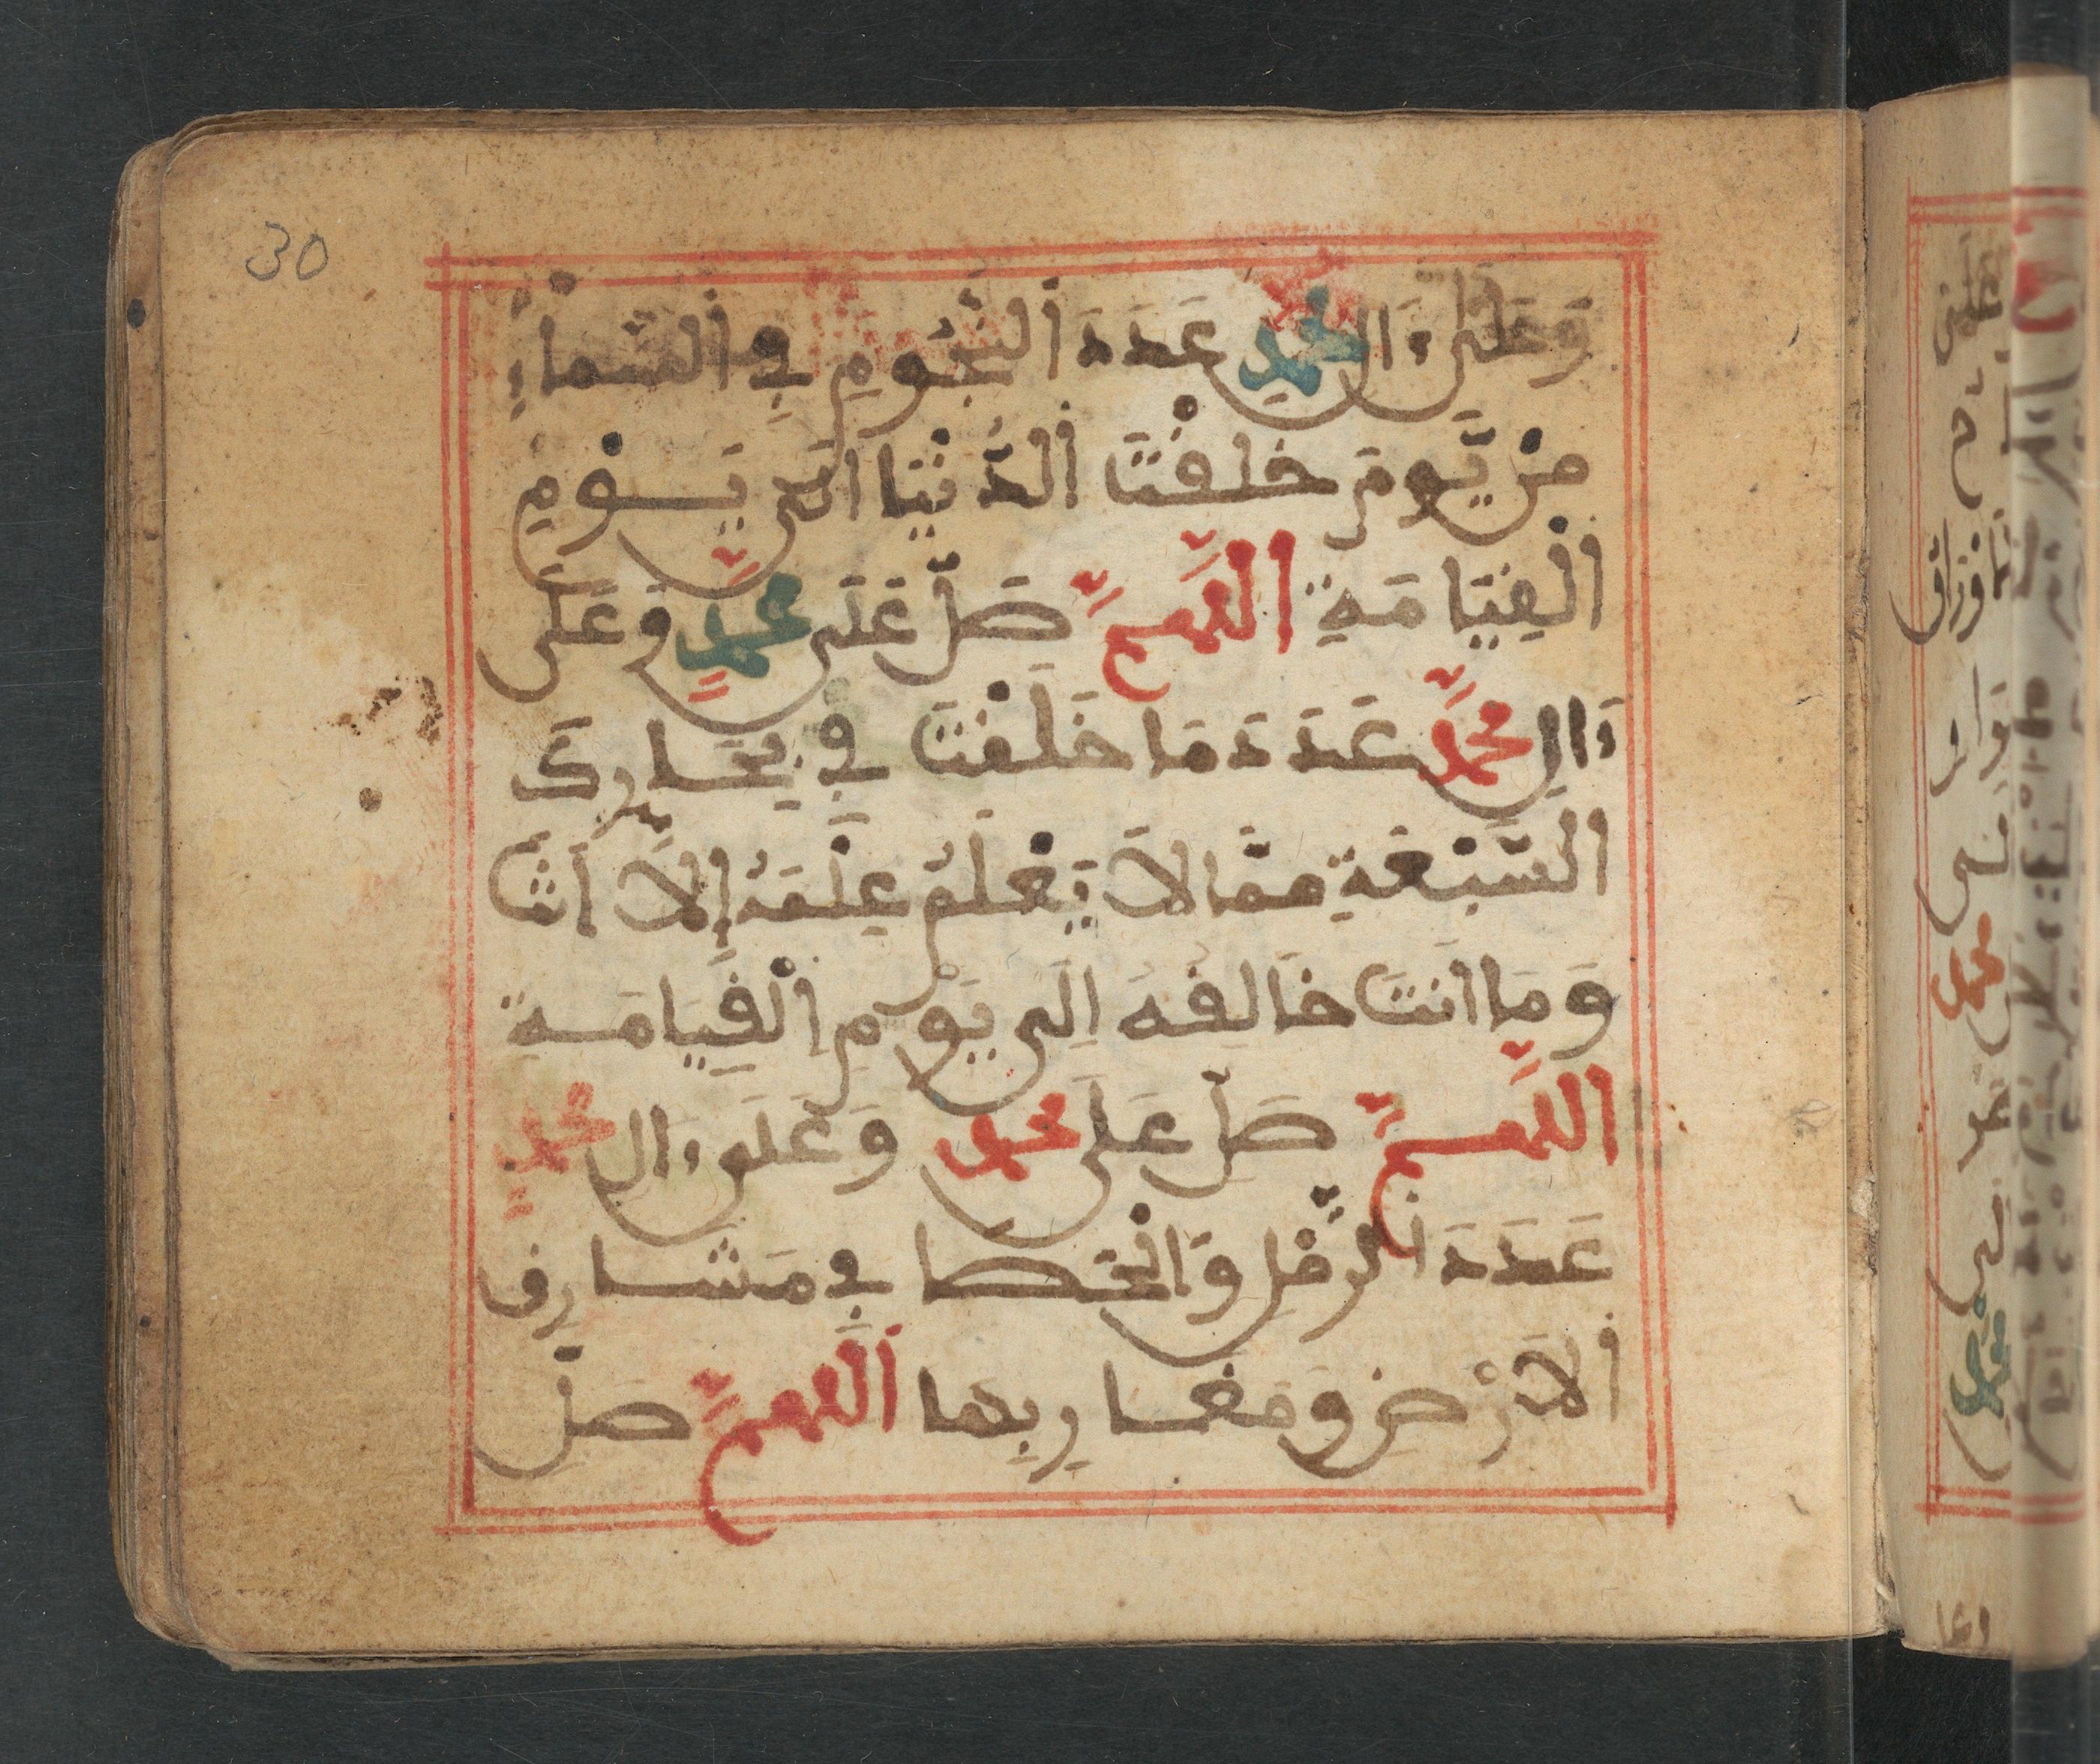 30
وَعَلَى ءَالِ مُحَمَّدٍ عَدَدَ النُّجُومِ فِي السَّمَاءِ
مِنْ يَّوْمَ خَلَقْتَ الدُّنْيَا اِلَى يَوْمِ
الْقِيَامَةِ اللَّهُمَّ صَلِّ عَلَى مُحَمَّدٍ وَعَلَى
ءَالِ مُحَمَّدٍ عَدَدَ مَا خَلَقْتَ فِي بِحَارِكَ
السَّبْعَةِ مِمَّا لَا يَعْلَمُ عِلْمَهُ إِلَّا اَنْتَ
وَمَا اَنْتَ خَالِقُهُ اِلَى يَوْمِ الْقِيَامَةِ
اللَّهُمَّ صَلِّ عَلَى مُحَمَّدٍ وَعَلَى ءَالِ مُحَمَّدٍ
عَدَدَ الرَّمْلِ وَالْحَصَا فِي مَشَارِقِ
الْاَرْضِ وَمَغَارِبِهَا اللَّهُمَّ صَلِّ